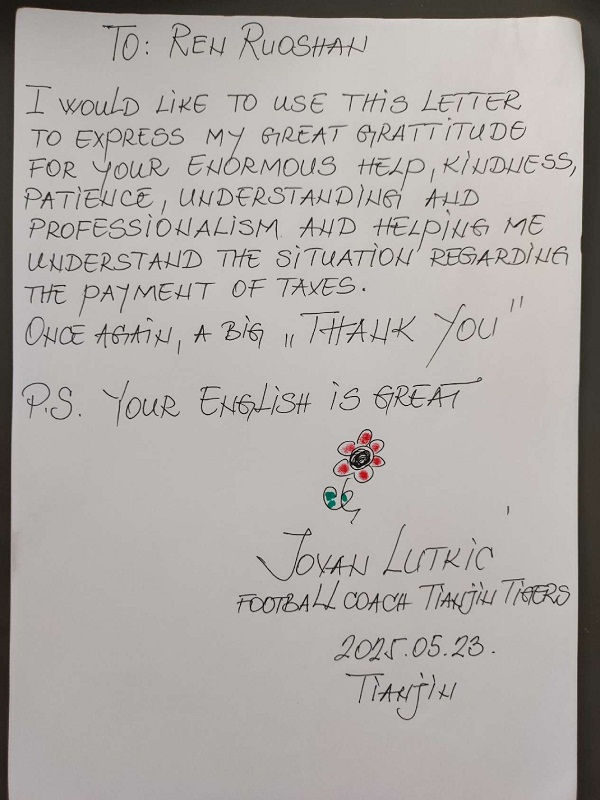 TO: REN RUOSHAN
I WOULD LIKE TO USE THIS LETTER
TO EXPRESS MY GREAT GRATTITUDE
FOR YOUR ENORMOUS HELP, KINDNESS,
PATIENCE, UNDERSTANDING AND
PROFESSIONALISM AND HELPING ME
UNDERSTAND THE SITUATION REGARDING
THE PAYMENT OF TAXES.
ONCE AGAIN, A BIG „THANK YOU"
P.S. YOUR ENGLISH IS GREAT
JOVAN LUTKIC
FOOTBALL COACH TIANJIN TIGERS
2025.05.23.
TIANJIN